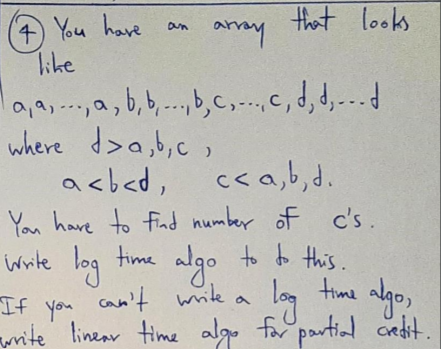 ④ You have an array that looks
like
a,a, ---, a, b,b, ..., b, c, ---, c, d, d, --- d
where d>a,b,c ,
a<b<d, c< a,b,d.
You have to find number of c's.
Write log time algo to do this.
If you can't write a log time algo,
write linear time algo for partial credit.